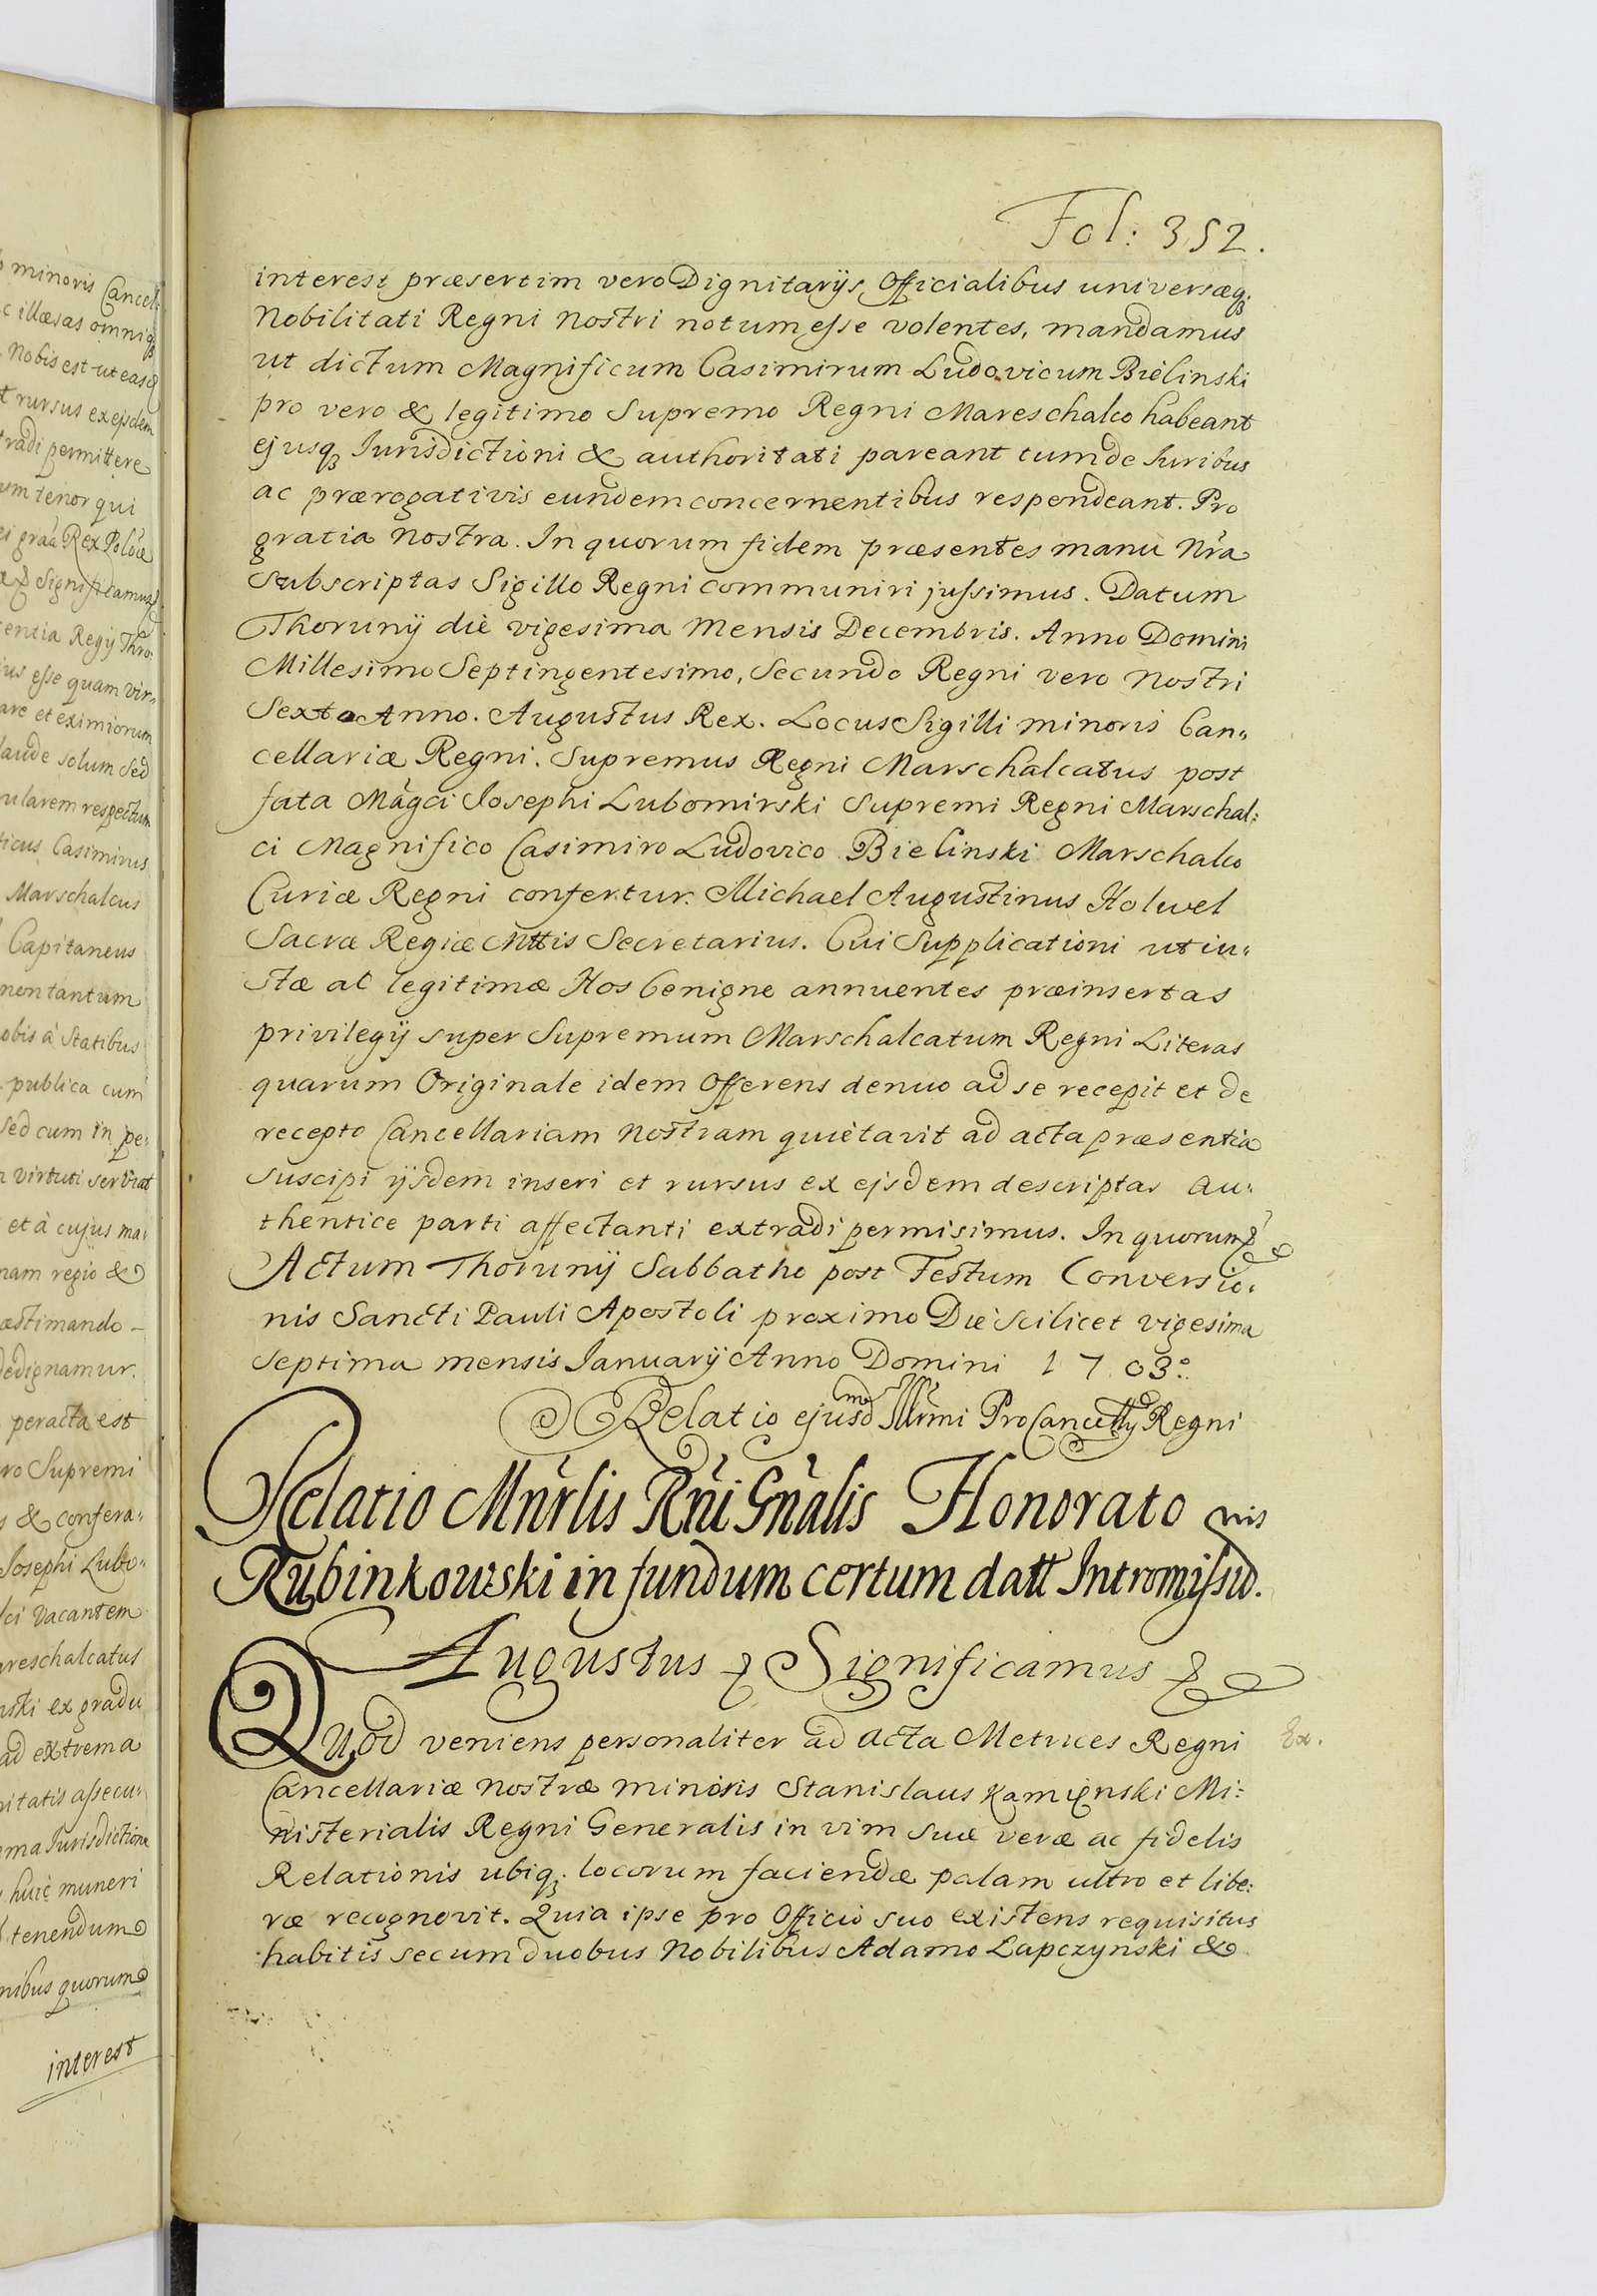 Fol: 352.
interest præsertim vero Dignitarijs, Officialibus universæq;
Nobilitati Regni Nostri notum esse volentes, mandamus
ut dictum Magnificum Casimirum Ludovicum Bielinski
pro vero & legitimo Supremo Regni Mareschalco habeant
ejusq; Iurisdictioni & authoritati pareant tum de Iuribus
ac prærogativis eundem concernentibus respondeant. Pro
gratia Nostra. In quorum fidem præsentes manu Nra
Subscriptas Sigillo Regni communiri jussimus. Datum
Thorunij die vigesima Mensis Decembris. Anno Domini
Millesimo Septingentesimo, Secundo Regni vero Nostri
Sexto Anno. Augustus Rex. Locus Sigilli minoris Can„
cellariæ Regni. Supremus Regni Marschalcatus post
fata Magci Josephi Lubomirski Supremi Regni Marschal:
ci Magnifico Casimiro Ludovico Bielinski Marschalco
Curiæ Regni confertur. Michael Augustinus Holwel
Sacræ Regiæ Mttis Secretarius. Cui Supplicationi ut iu„
stæ ac legitimæ Nos benigne annuentes præinsertas
privilegij super Supremum Marschalcatum Regni Literas
quarum Originale idem Offerens denuo ad se recepit et de
recepto Cancellariam Nostram quietavit ad acta præsentia
suscipi ijsdem inseri et rursus ex ejsdem descriptas au„
thentice parti affectanti extradi permisimus. In quorum &
Actum Thorunij Sabbatho post Festum Conversio„
nis Sancti Pauli Apostoli proximo Die Scilicet vigesima
septima mensis Ianuarij Anno Domini 1703º.
Relatio ejusdm Illrmi ProCancellrij Regni
Relatio Mnrlis Rni Gnalis Honorato nis
Rubinkowski in fundum certum datt Intromissio.
Augustus & Significamus &
Quod veniens personaliter ad acta Metrices Regni
Ex.
Cancellariæ Nostræ minoris Stanislaus Kamienski Mi:
nisterialis Regni Generalis in vim suæ veræ ac fidelis
Relationis ubiq; locorum faciendæ palam ultro et libe:
ræ recognovit. Quia ipse pro Officio suo existens requisitus
habitis secum duobus Nobilibus Adamo Lapczynski &
minoris Cancel:
c illæsas omniq;
Nobis est ut eas
t rursus ex ejsdem
tradi permittere
um tenor qui
ei graa Rex Polöæ
& Significamus
entia Regij Thro:
ius esse quam vir„
are et eximiorum
laude solum Sed
ularem respectum
ficus Casimirus
Marschalcus
Capitaneus
non tantum
obis à Statibus
publica cum
sed cum in pe:
virtuti serviat
et à cujus ma:
nam regio &
æstimando
dedignamur.
peracta est
ro Supremi
& confera:
Josephi Lubo:
lci vacantem
areschalcatus
nski ex gradu
ad extrema
nitatis assecu:
ma Iurisdictione
huic muneri
tenendum
nibus quorum
interest